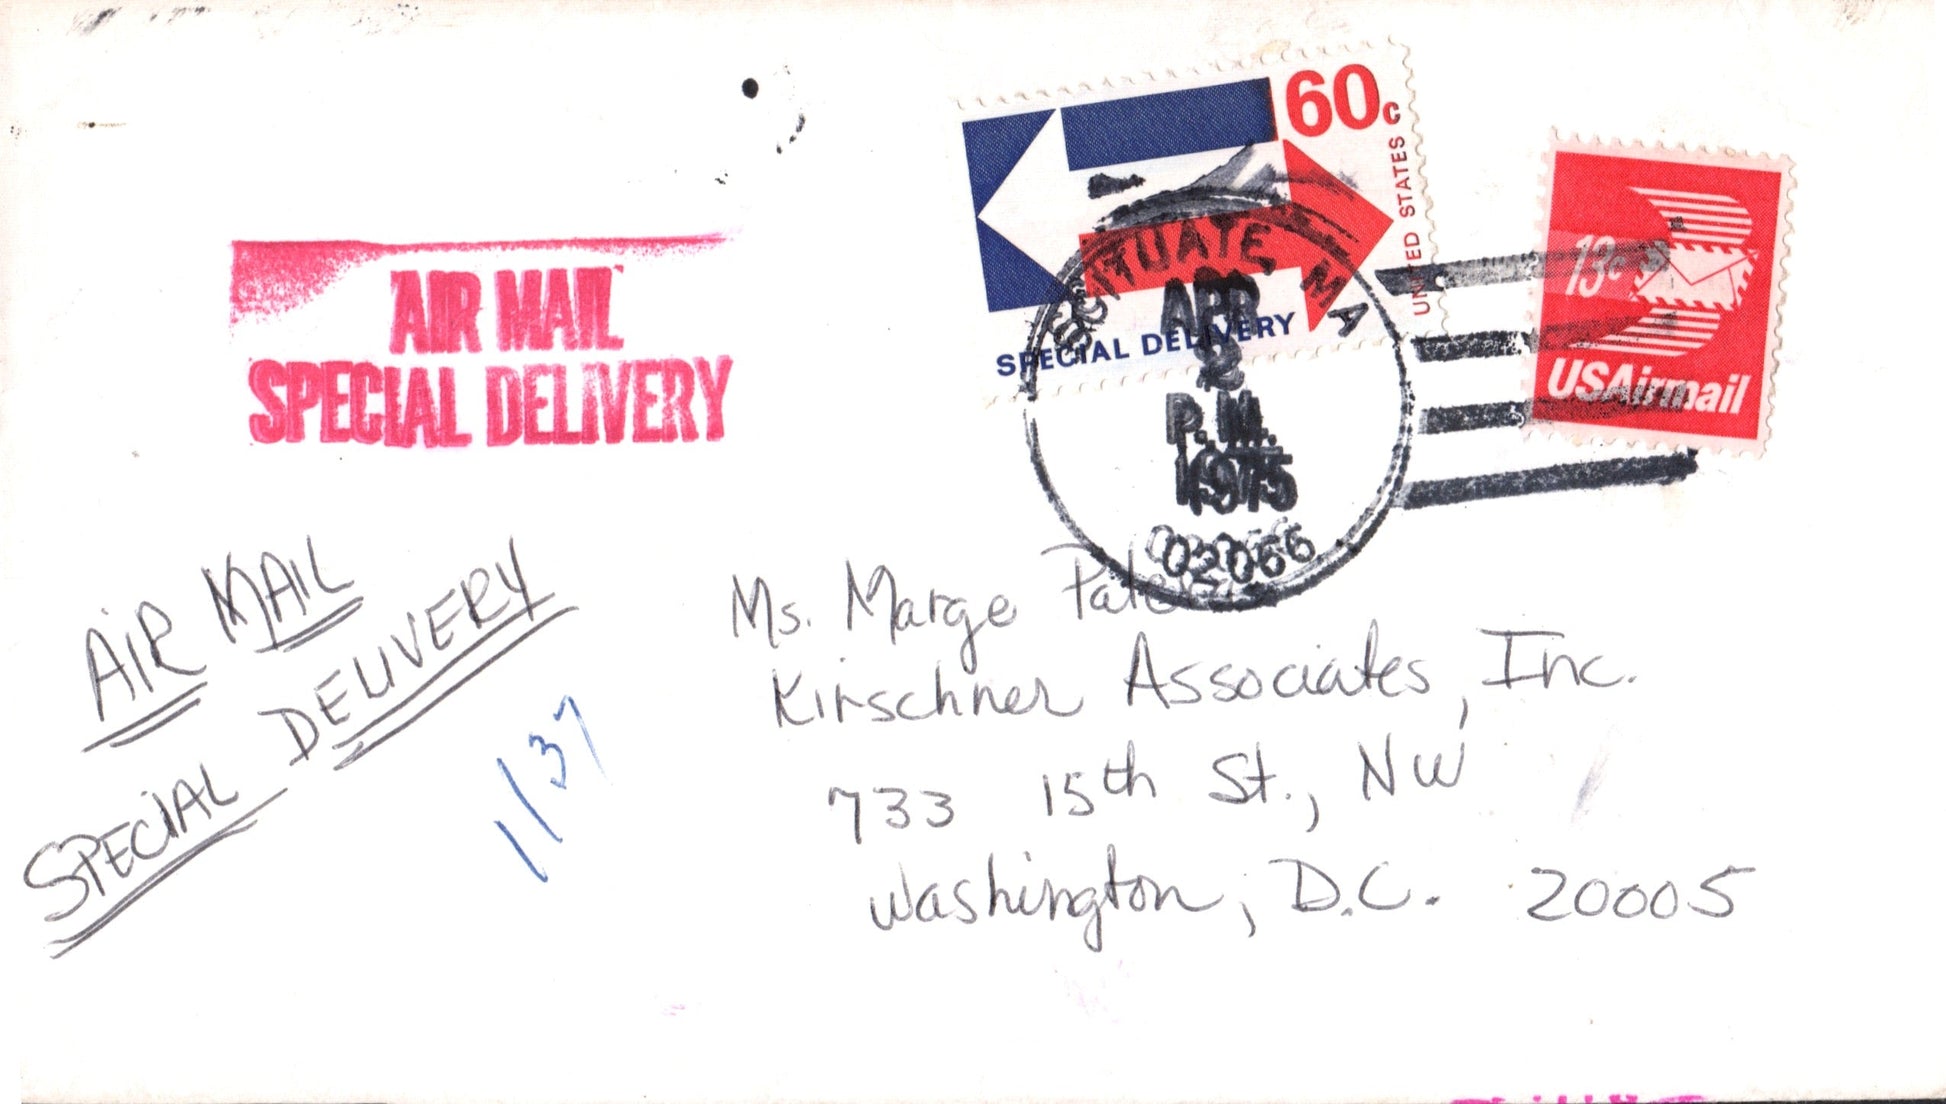 60c
UNITED STATES
SPECIAL DELIVERY
13c
USAirmail
SCITUATE, MA
APR
2
P.M.
1975
02066
AIR MAIL
SPECIAL DELIVERY
AIR MAIL
SPECIAL DELIVERY
11/37
Ms. Marge
Kirschner Associates, Inc.
733 15th St., NW
Washington, D.C. 20005